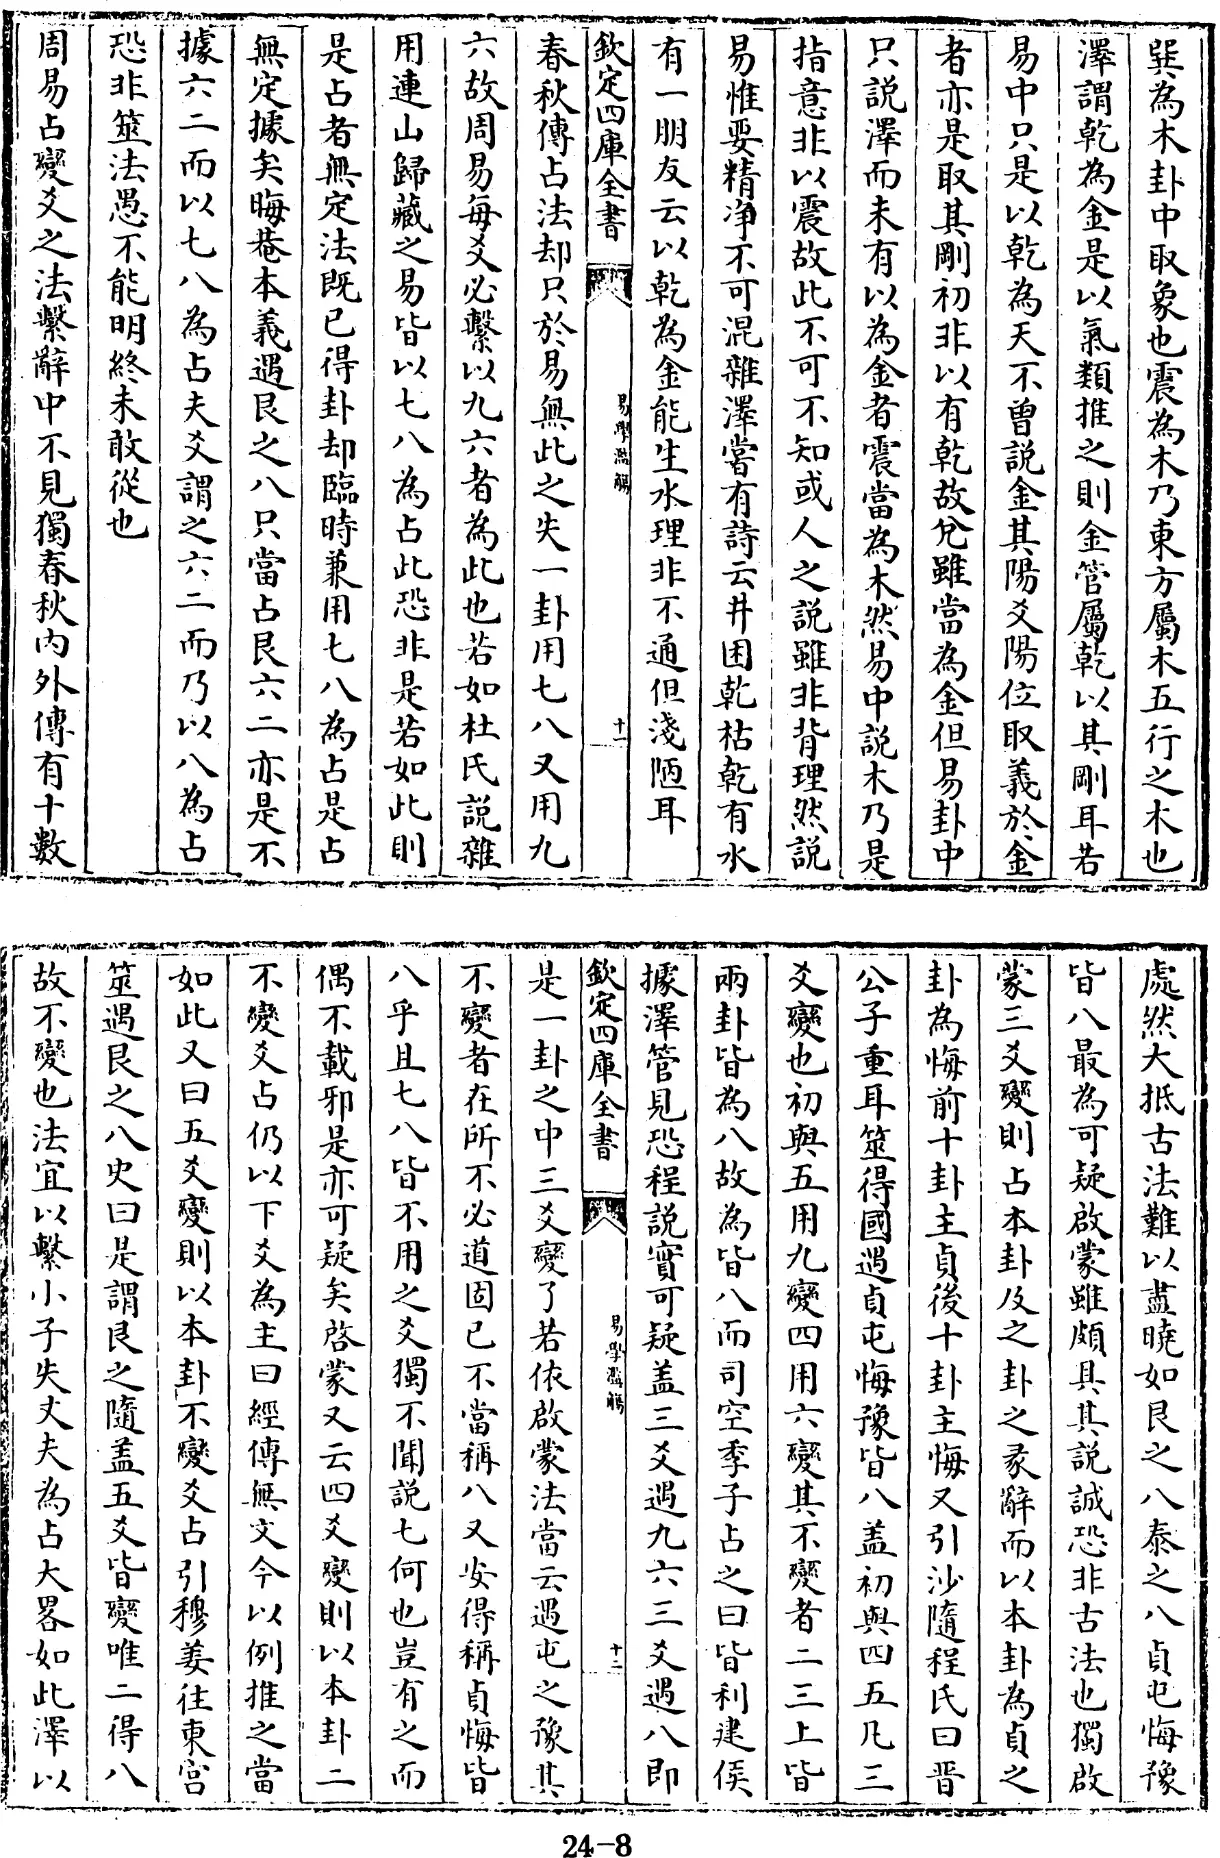 巽為木卦中取象也震為木乃東方屬木五行之木也
澤謂乾為金是以氣類推之則金管屬乾以其剛耳若
易中只是以乾為天不曾説金其陽爻陽位取義於金
者亦是取其剛初非以有乾故兊雖當為金但易卦中
只説澤而未有以為金者震當為木然易中説木乃是
指意非以震故此不可不知或人之説雖非背理然説
易惟要精净不可混雜澤嘗有詩云井困乾枯乾有水
有一朋友云以乾為金能生水理非不通但淺陋耳
欽定四庫全書
易學濫觴
十一
春秋傳占法却只於易無此之失一卦用七八又用九
六故周易每爻必繫以九六者為此也若如杜氏説雜
用連山歸藏之易皆以七八為占此恐非是若如此則
是占者無定法既已得卦却臨時兼用七八為占是占
無定據矣晦菴本義遇艮之八只當占艮六二亦是不
據六二而以七八為占夫爻謂之六二而乃以八為占
恐非筮法愚不能明終未敢從也
周易占變爻之法繫辭中不見獨春秋内外傳有十數
處然大抵古法難以盡曉如艮之八泰之八貞屯悔豫
皆八最為可疑啟蒙雖頗具其説誠恐非古法也獨啟
蒙三爻變則占本卦及之卦之彖辭而以本卦為貞之
卦為悔前十卦主貞後十卦主悔又引沙隨程氏曰晋
公子重耳筮得國遇貞屯悔豫皆八盖初與四五凡三
爻變也初與五用九變四用六變其不變者二三上皆
兩卦皆為八故為皆八而司空季子占之曰皆利建侯
據澤管見恐程説實可疑盖三爻遇九六三爻遇八即
欽定四庫全書
易學濫觴
十二
是一卦之中三爻變了若依啟蒙法當云遇屯之豫其
不變者在所不必道固已不當稱八又安得稱貞悔皆
八乎且七八皆不用之爻獨不聞説七何也豈有之而
偶不載邪是亦可疑矣啓蒙又云四爻變則以本卦二
不變爻占仍以下爻為主曰經傳無文今以例推之當
如此又曰五爻變則以本卦不變爻占引穆姜往東宮
筮遇艮之八史曰是謂艮之隨盖五爻皆變唯二得八
故不變也法宜以繫小子失丈夫為占大畧如此澤以
24-8